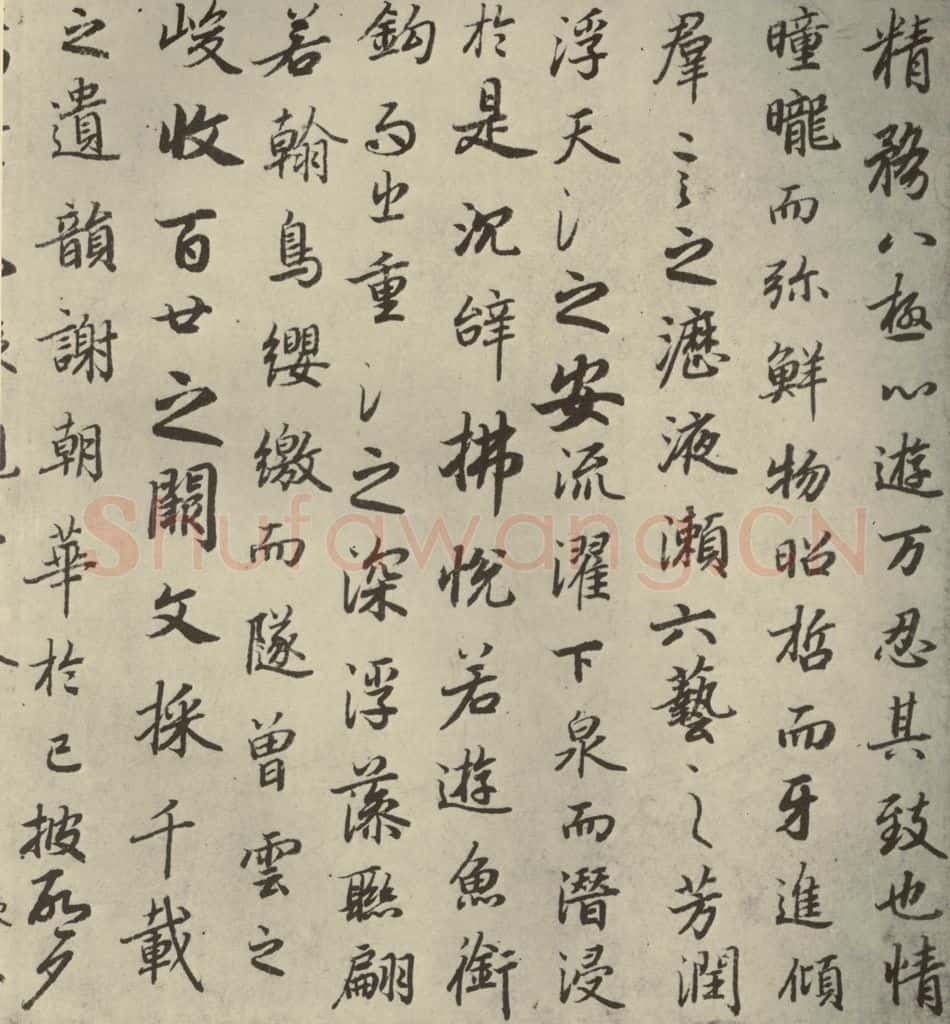 精務八極心遊万忍其致也情
曈曨而弥鮮物昭哲而牙進傾
羣言之瀝液瀨六藝之芳潤
浮天氵之安流濯下泉而潛浸
於是沉辭拂悅若遊魚銜
鈎而出重氵之深浮藻聯翩
若翰鳥纓繳而隧曾雲之
峻收百廿之闕文採千載
之遺韻謝朝華於已披啓夕
Shufawang.CN